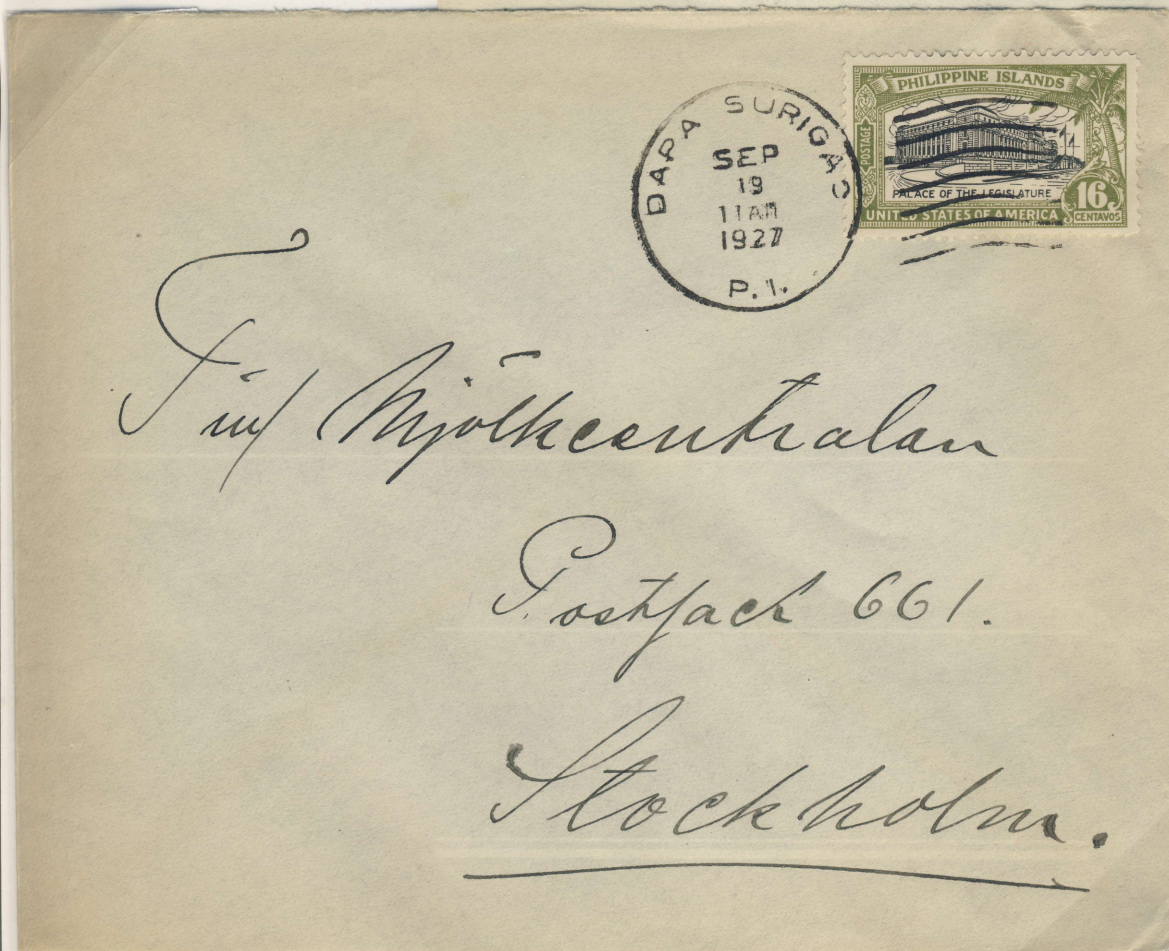 DAPA SURIGAO
SEP
19
11 AM
1927
P. I.
PHILIPPINE ISLANDS
POSTAGE
PALACE OF THE LEGISLATURE
UNITED STATES OF AMERICA
16
CENTAVOS
Mjölkcentralan
Postfack 661.
Stockholm.